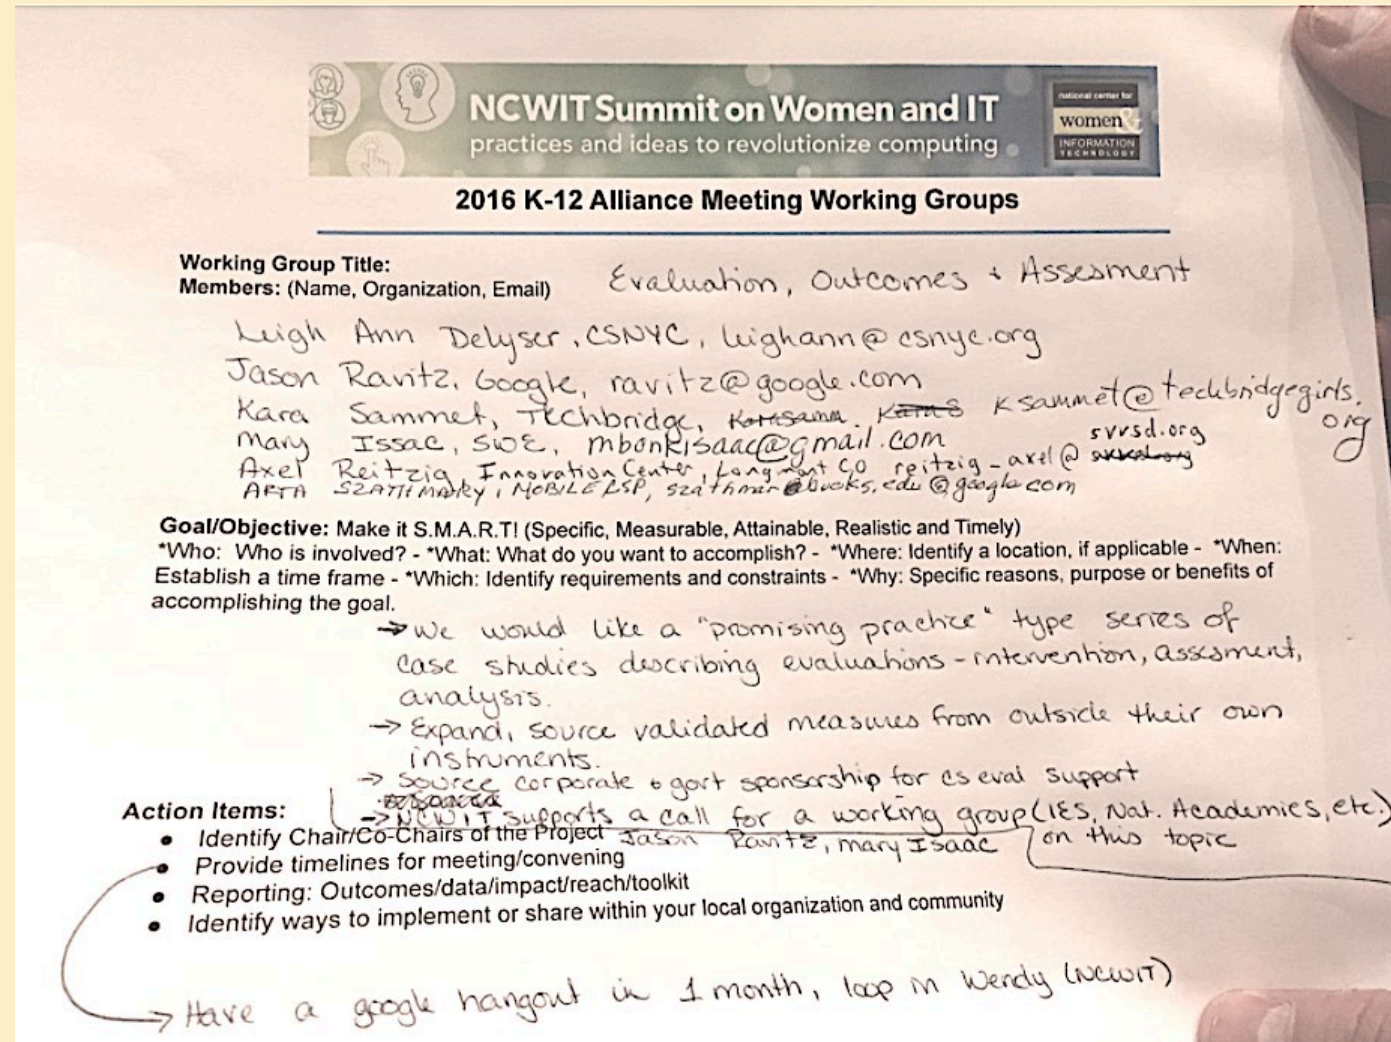 NCWIT Summit on Women and IT
practices and ideas to revolutionize computing
national center for
women &
INFORMATION
TECHNOLOGY
2016 K-12 Alliance Meeting Working Groups
Working Group Title:
Members: (Name, Organization, Email) Evaluation, Outcomes + Assesment
Leigh Ann Delyser, CSNYC, leighann@csnyc.org
Jason Ravitz, Google, ravitz@google.com
Kara Sammet, Techbridge, ksammet@techbridgegirls.
org
Mary Issac, SWE, mbonkisaac@gmail.com
svvsd.org
Axel Reitzig, Innovation Center, Longmont CO reitzig-axel@
SZATHMARY, MOBILE CSP, @google.com
Goal/Objective: Make it S.M.A.R.T! (Specific, Measurable, Attainable, Realistic and Timely)
*Who: Who is involved? - *What: What do you want to accomplish? - *Where: Identify a location, if applicable - *When:
Establish a time frame - *Which: Identify requirements and constraints - *Why: Specific reasons, purpose or benefits of
accomplishing the goal.
→ We would like a "promising practice" type series of
case studies describing evaluations - intervention, assesment,
analysis.
→ Expand, source validated measures from outside their own
instruments.
→ Source corporate & govt sponsorship for cs eval support
Action Items:
→ NCWIT supports a call for a working group (IES, Nat. Academies, etc.)
on this topic
• Identify Chair/Co-Chairs of the Project Jason Ravitz, Mary Isaac
• Provide timelines for meeting/convening
• Reporting: Outcomes/data/impact/reach/toolkit
• Identify ways to implement or share within your local organization and community
→ Have a google hangout in 1 month, loop in Wendy (NCWIT)